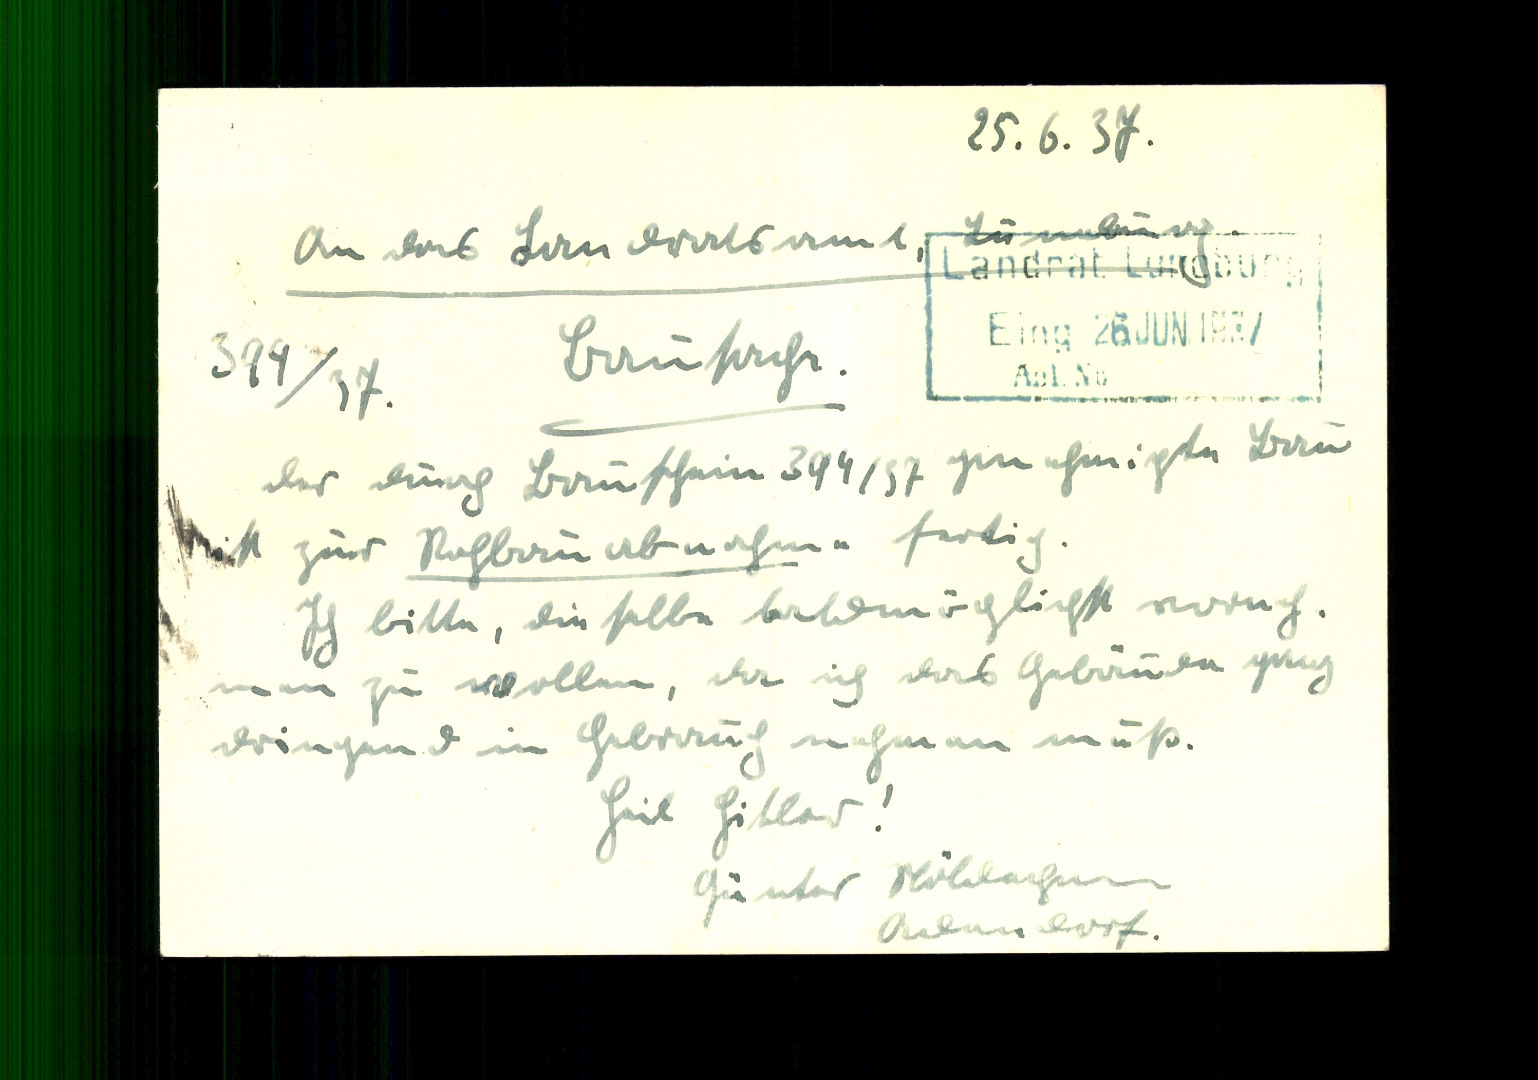 25.6.37.
An das Landratsamt, Lüneburg.
Landrat Lüneburg
Eing 26 JUN 1937
394/37.
Bausache.
der durch Bauschein 394/37 genehmigte Bau
ist zur Rohbauabnahme fertig.
Ich bitte, dieselbe baldmöglichst vorneh-
men zu wollen, da ich das Gebäude ganz
dringend in Gebrauch nehmen muß.
Heil Hitler!
Günter
Adendorf.